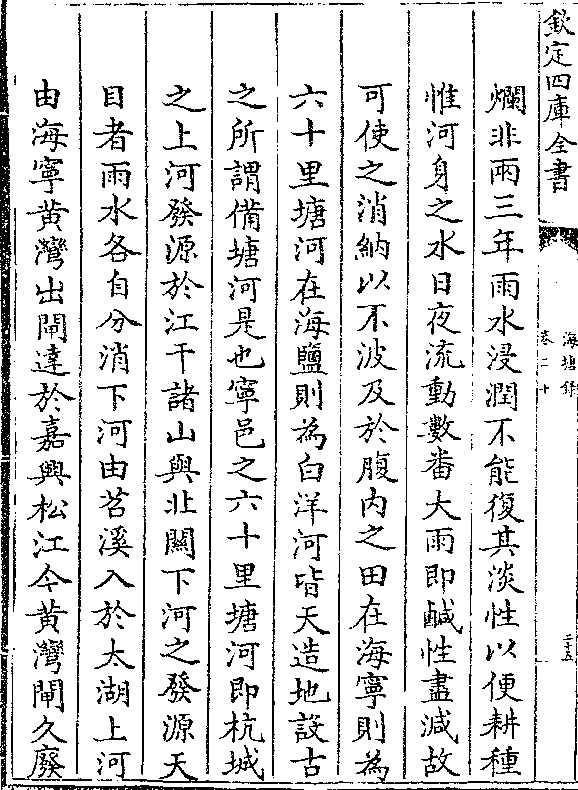 欽定四庫全書
海塘錄
卷二十
二十五
爛非兩三年雨水浸潤不能復其淡性以便耕種
惟河身之水日夜流動數畨大雨即鹹性盡減故
可使之消納以不波及於腹内之田在海寧則為
六十里塘河在海鹽則為白洋河皆天造地設古
之所謂備塘河是也寧邑之六十里塘河即杭城
之上河發源於江干諸山與北關下河之發源天
目者雨水各自分消下河由苕溪入於太湖上河
由海寧黄灣出閘達於嘉興松江今黄灣閘久廢